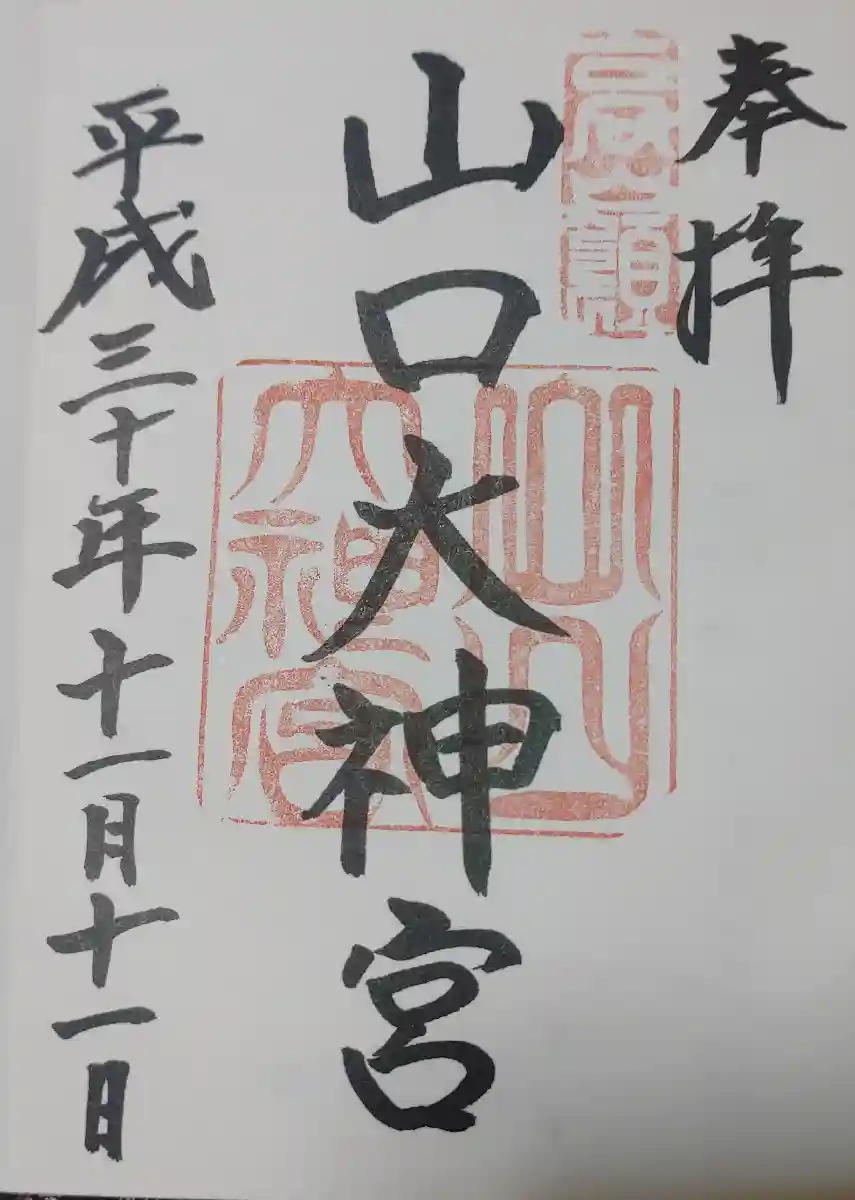 奉拝
山口大神宮
山口
大神宮
平成三十年十一月十一日